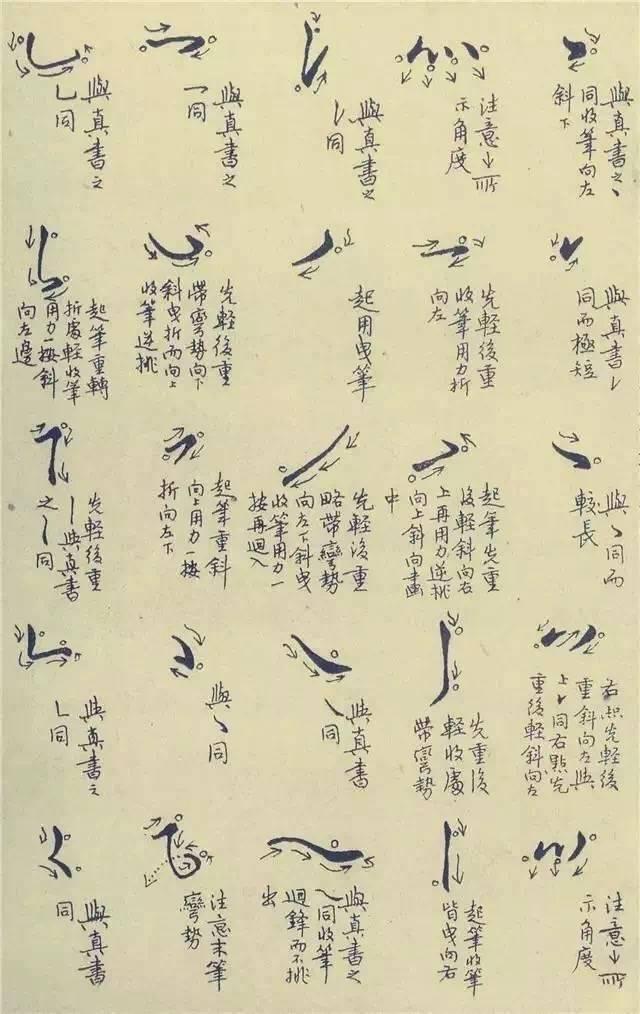 與真書之丶
同收筆向左
斜下
注意↓所
示角度
與真書之
丿同
與真書之
一同
與真書之
乚同
與真書㇀
同而極短
先輕後重
收筆用力折
向左
起用曳筆
先輕後重
帶彎勢向下
斜曳折而向上
收筆逆挑
起筆重轉
折處輕收筆
用力一按斜
向左邊
與丶同而
較長
起筆先重
後輕斜向右
上再用力逆挑
向上斜向畫
中
先輕後重
略帶彎勢
向左下斜曳
收筆用力一
按再迴入
起筆重斜
向上用力一按
折向左下
先輕後重
丨與真書
之丨同
右點先輕後
重斜向左與
上㇀同右點先
重後輕斜向左
先重後
輕收處
帶彎勢
與真書
㇏同
與丶同
與真書之
㇄同
注意↓所
示角度
起筆收筆
皆曳向右
與真書之
㇏同收筆
迴鋒而不挑
出
注意末筆
彎勢
與真書
同